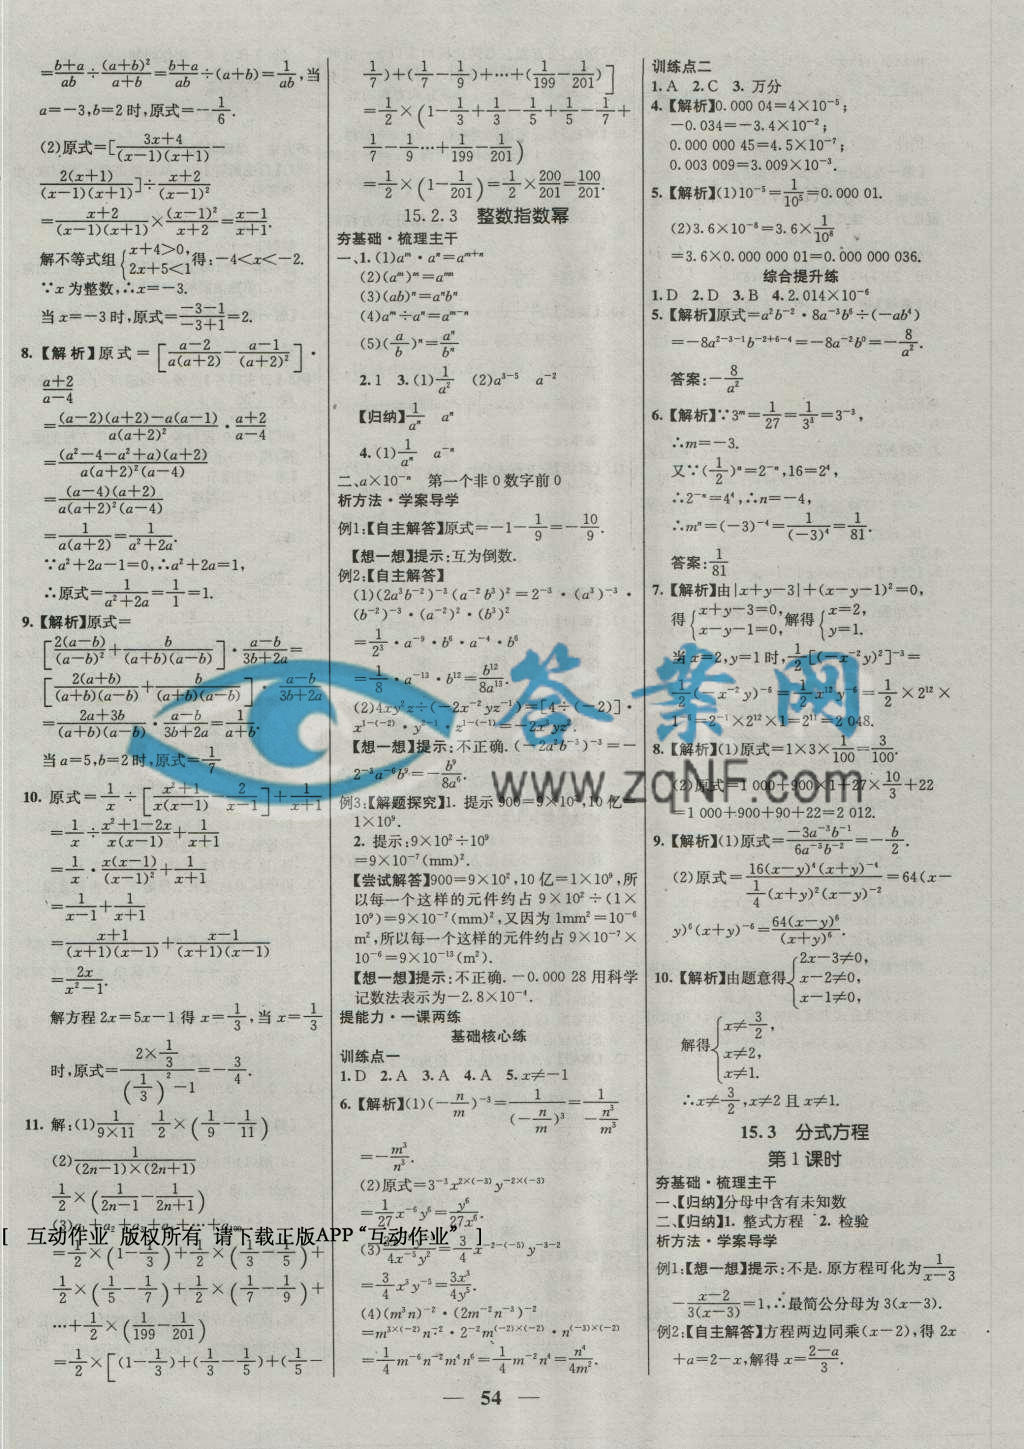 =\frac{b+a}{ab}÷\frac{(a+b)^2}{a+b}=\frac{b+a}{ab}÷(a+b)=\frac{1}{ab},当
a=-3,b=2时,原式=-\frac{1}{6}.
(2)原式=[\frac{3x+4}{(x-1)(x+1)}-
\frac{2(x+1)}{(x-1)(x+1)}]÷\frac{x+2}{(x-1)^2}
=\frac{x+2}{(x-1)(x+1)}×\frac{(x-1)^2}{x+2}=\frac{x-1}{x+1}.
解不等式组{x+4>0, 2x+5<1得:-4<x<-2.
∵x为整数,∴x=-3.
当x=-3时,原式=\frac{-3-1}{-3+1}=2.
8.【解析】原式=[\frac{a-2}{a(a+2)}-\frac{a-1}{(a+2)^2}]·
\frac{a+2}{a-4}
=\frac{(a-2)(a+2)-a(a-1)}{a(a+2)^2}·\frac{a+2}{a-4}
=\frac{(a^2-4-a^2+a)(a+2)}{a(a+2)^2(a-4)}
=\frac{(a-4)(a+2)}{a(a+2)^2(a-4)}
=\frac{1}{a(a+2)}=\frac{1}{a^2+2a}.
∵a^2+2a-1=0,∴a^2+2a=1,
∴原式=\frac{1}{a^2+2a}=\frac{1}{1}=1.
9.【解析】原式=
[\frac{2(a-b)}{(a-b)^2}+\frac{b}{(a+b)(a-b)}]·\frac{a-b}{3b+2a}=
[\frac{2(a+b)}{(a+b)(a-b)}+\frac{b}{(a+b)(a-b)}]·\frac{a-b}{3b+2a}
=\frac{2a+3b}{(a+b)(a-b)}·\frac{a-b}{3b+2a}=\frac{1}{a+b}.
当a=5,b=2时,原式=\frac{1}{7}
10. 原式=\frac{1}{x}÷[\frac{x^2+1}{x(x-1)}-\frac{2}{x-1}]+\frac{1}{x+1}
=\frac{1}{x}÷\frac{x^2+1-2x}{x(x-1)}+\frac{1}{x+1}
=\frac{1}{x}·\frac{x(x-1)}{(x-1)^2}+\frac{1}{x+1}
=\frac{1}{x-1}+\frac{1}{x+1}
=\frac{x+1}{(x+1)(x-1)}+\frac{x-1}{(x+1)(x-1)}
=\frac{2x}{x^2-1}.
解方程2x=5x-1得x=\frac{1}{3},当x=\frac{1}{3}
时,原式=\frac{2×\frac{1}{3}}{(\frac{1}{3})^2-1}=-\frac{3}{4}.
11. 解:(1)\frac{1}{9×11} \frac{1}{2}×(\frac{1}{9}-\frac{1}{11})
(2)\frac{1}{(2n-1)×(2n+1)}
\frac{1}{2}×(\frac{1}{2n-1}-\frac{1}{2n+1})
(3)a_1+a_2+a_3+a_4+…+a_{100}
[ 互动作业 版权所有 请下载正版APP“互动作业” ]
=\frac{1}{2}×(1-\frac{1}{3})+\frac{1}{2}×(\frac{1}{3}-\frac{1}{5})+
\frac{1}{2}×(\frac{1}{5}-\frac{1}{7})+\frac{1}{2}×(\frac{1}{7}-\frac{1}{9})+
…+\frac{1}{2}×(\frac{1}{199}-\frac{1}{201})
=\frac{1}{2}×[(1-\frac{1}{3})+(\frac{1}{3}-\frac{1}{5})+(\frac{1}{5}-
\frac{1}{7})+(\frac{1}{7}-\frac{1}{9})+…+(\frac{1}{199}-\frac{1}{201})]
=\frac{1}{2}×(1-\frac{1}{3}+\frac{1}{3}-\frac{1}{5}+\frac{1}{5}-\frac{1}{7}+
\frac{1}{7}-\frac{1}{9}…+\frac{1}{199}-\frac{1}{201})
=\frac{1}{2}×(1-\frac{1}{201})=\frac{1}{2}×\frac{200}{201}=\frac{100}{201}.
15.2.3 整数指数幂
夯基础·梳理主干
一、1.(1)a^m·a^n=a^{m+n}
(2)(a^m)^n=a^{mn}
(3)(ab)^n=a^nb^n
(4)a^m÷a^n=a^{m-n}
(5)(\frac{a}{b})^n=\frac{a^n}{b^n}
2.1 3.(1)\frac{1}{a^2} (2)a^{3-5} a^{-2}
【归纳】\frac{1}{a^n} a^n
4.(1)\frac{1}{a^n} a^{-n}
二、a×10^{-n} 第一个非0数字前0
析方法·学案导学
例1:【自主解答】原式=-1-\frac{1}{9}=-\frac{10}{9}.
【想一想】提示:互为倒数.
例2:【自主解答】
(1)(2a^3b^{-2})^{-3}(a^{-2}b^3)^2=2^{-3}·(a^3)^{-3}·
(b^{-2})^{-3}·(a^{-2})^2·(b^3)^2
=\frac{1}{2^3}·a^{-9}·b^6·a^{-4}·b^6
=\frac{1}{8}·a^{-13}·b^{12}=\frac{b^{12}}{8a^{13}}.
(2)4xy^2z÷(-2x^{-2}yz^{-1})=[4÷(-2)]·
x^{1-(-2)}·y^{2-1}·z^{1-(-1)}=-2x^3yz^2.
【想一想】提示:不正确.(-2a^2b^{-3})^{-3}=-
2^{-3}a^{-6}b^9=-\frac{b^9}{8a^6}.
例3:【解题探究】1. 提示 900=9×10^2,10亿=
1×10^9.
2. 提示:9×10^2÷10^9
=9×10^{-7}(mm)^2.
【尝试解答】900=9×10^2,10亿=1×10^9,所
以每一个这样的元件约占9×10^2÷(1×
10^9)=9×10^{-7}(mm)^2,又因为1mm^2=10^{-6}
m^2,所以每一个这样的元件约占9×10^{-7}×
10^{-6}=9×10^{-13}(m^2).
【想一想】提示:不正确.-0.000 28用科学
记数法表示为-2.8×10^{-4}.
提能力·一课两练
基础核心练
训练点一
1. D 2. A 3. A 4. A 5. x≠-1
6.【解析】(1)(-\frac{n}{m})^{-3}=\frac{1}{(-\frac{n}{m})^3}=\frac{1}{-\frac{n^3}{m^3}}
=-\frac{m^3}{n^3}.
(2)原式=3^{-3}x^{2×(-3)}y^{-2×(-3)}
=\frac{1}{27}x^{-6}y^6=\frac{y^6}{27x^6}.
(3)\frac{3x^{-2}}{4x^{-5}y^2}=\frac{3}{4}x^{-2-(-5)}y^{-3-2}
=\frac{3}{4}x^3y^{-5}=\frac{3x^3}{4y^5}.
(4)(m^3n)^{-2}·(2m^{-2}n^{-3})^{-2}
=m^{3×(-2)}n^{-2}·2^{-2}m^{(-2)×(-2)}·n^{(-3)×(-2)}
=\frac{1}{4}m^{-6}n^{-2}m^4n^6=\frac{1}{4}m^{-2}n^4=\frac{n^4}{4m^2}.
训练点二
1. A 2. C 3. 万分
4.【解析】0.000 04=4×10^{-5};
-0.034=-3.4×10^{-2};
0.000 000 45=4.5×10^{-7};
0.003 009=3.009×10^{-3}.
5.【解析】(1)10^{-5}=\frac{1}{10^5}=0.000 01.
(2)3.6×10^{-8}=3.6×\frac{1}{10^8}
=3.6×0.000 000 01=0.000 000 036.
综合提升练
1. D 2. D 3. B 4. 2.014×10^{-6}
5.【解析】原式=a^2b^{-2}·8a^{-3}b^6÷(-ab^4)
=-8a^{2-3-1}b^{-2+6-4}=-8a^{-2}b^0=-\frac{8}{a^2}.
答案:-\frac{8}{a^2}
6.【解析】∵3^m=\frac{1}{27}=\frac{1}{3^3}=3^{-3},
∴m=-3.
又∵(\frac{1}{2})^n=2^{-n},16=2^4,
∴2^{-n}=4^4,∴n=-4,
∴m^n=(-3)^{-4}=\frac{1}{(-3)^4}=\frac{1}{81}.
答案:\frac{1}{81}
7.【解析】由|x+y-3|+(x-y-1)^2=0,
得{x+y-3=0, x-y-1=0,解得{x=2, y=1.
当x=2,y=1时,\frac{1}{2}[(-x^{-2}y)^2]^{-3}=
\frac{1}{2}(-x^{-2}y)^{-6}=\frac{1}{2}x^{12}y^{-6}=\frac{1}{2}×2^{12}×
1^{-6}=2^{-1}×2^{12}×1=2^{11}=2 048.
8.【解析】(1)原式=1×3×\frac{1}{100}=\frac{3}{100}.
(2)原式=1 000+900×1+27×\frac{10}{3}+22
=1 000+900+90+22=2 012.
9.【解析】(1)原式=\frac{-3a^{-3}b^{-1}}{6a^{-3}b^{-2}}=-\frac{b}{2}.
(2)原式=\frac{16(x-y)^4(x+y)^{-4}}{\frac{1}{4}(x+y)^2(x-y)^{-2}}=64(x-
y)^6(x+y)^{-6}=\frac{64(x-y)^6}{(x+y)^6}.
10.【解析】由题意得{2x-3≠0, x-2≠0, x-1≠0,
解得{x≠\frac{3}{2}, x≠2, x≠1.
∴x≠\frac{3}{2},x≠2且x≠1.
15.3 分式方程
第1课时
夯基础·梳理主干
一、【归纳】分母中含有未知数
二、【归纳】1. 整式方程 2. 检验
析方法·学案导学
例1:【想一想】提示:不是.原方程可化为\frac{1}{x-3}
-\frac{x-2}{3(x-3)}=1,∴最简公分母为3(x-3).
例2:【自主解答】方程两边同乘(x-2),得2x
+a=2-x,解得x=\frac{2-a}{3}.
— 54 —
答案网
www.zqNF.com